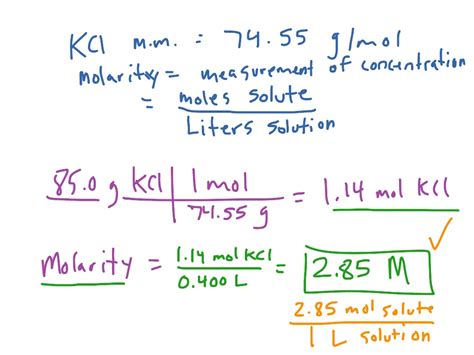 KCl m.m. = 74.55 g/mol
molarity = measurement of concentration
= moles solute
Liters solution
85.0 g KCl | 1 mol = 1.14 mol KCl
74.55 g
Molarity = 1.14 mol KCl = 2.85 M ✓
0.400 L
2.85 mol solute
1 L solution